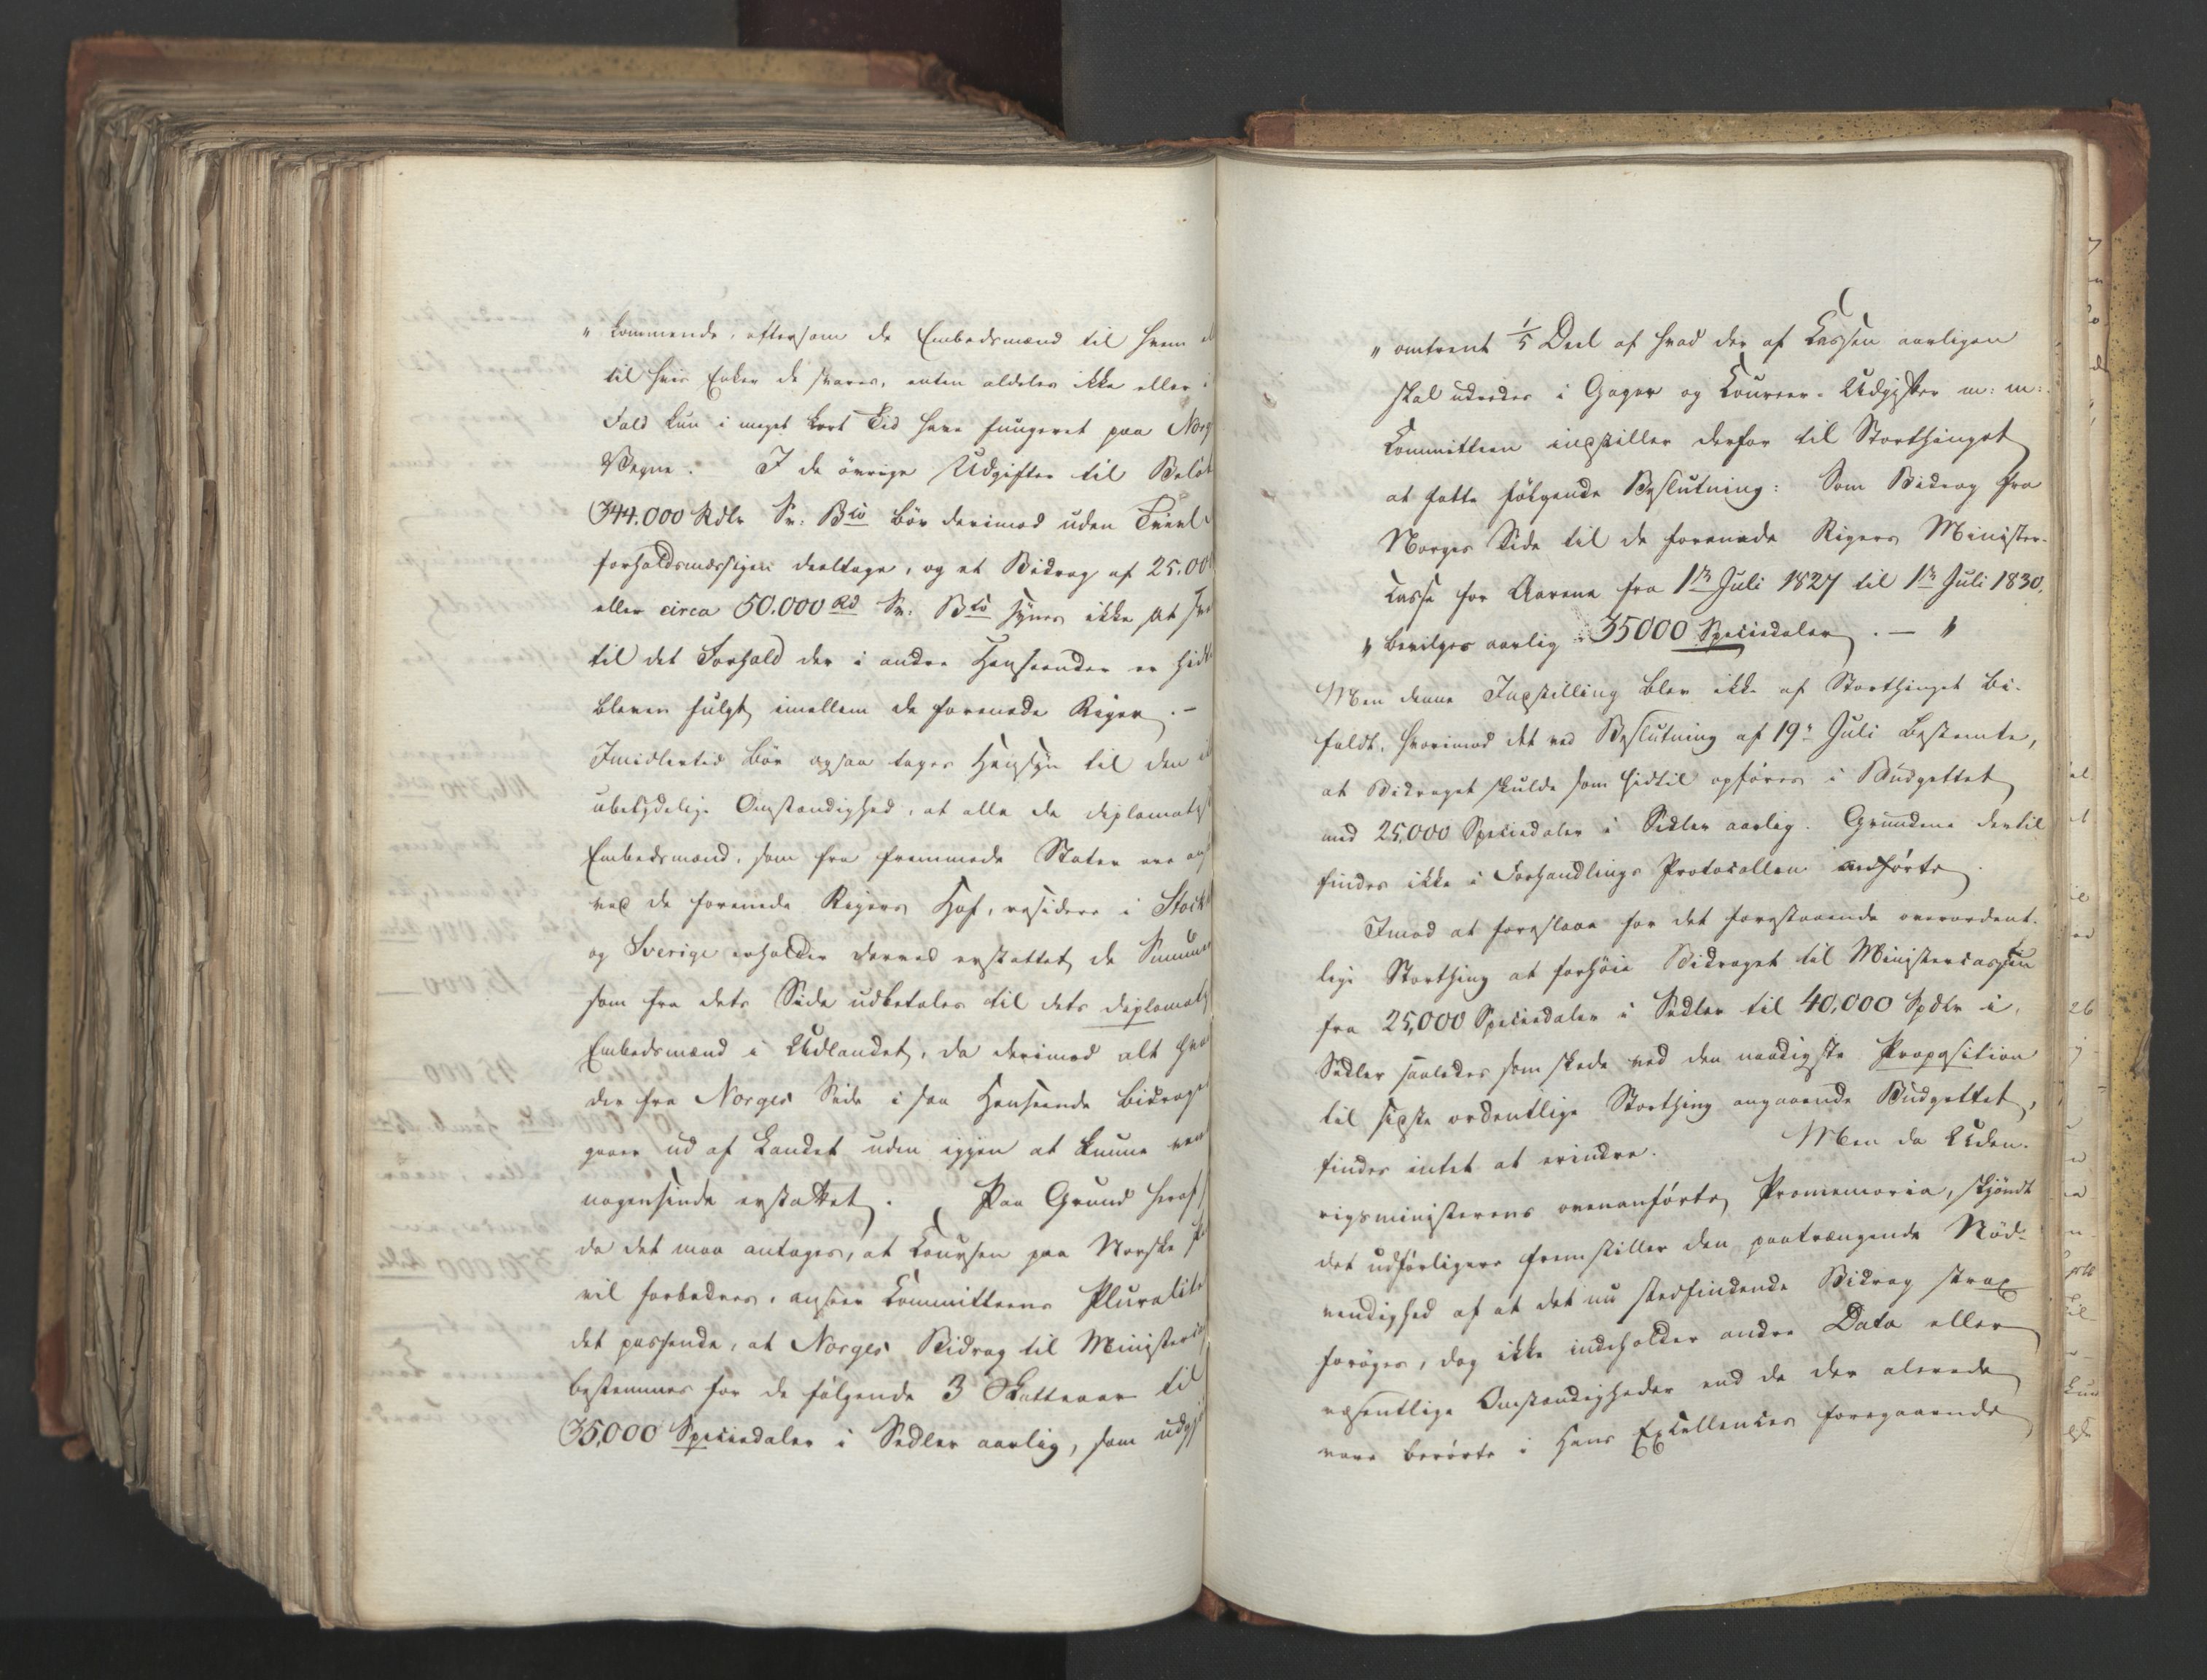 " kommende, eftersom de Embedsmænd til hvem
til hvis Enker de svares, enten aldeles ikke eller i
Fald kun i meget kort Tid have fungeret paa Norg
Vegne. I de övrige Udgifter til Belöb
344.000 Rdlr Sv: Bco bör derimod uden Tvivl
forholdsmæssigen deeltage, og et Bidrag af 25.00
eller circa 50.000 Rd Sv: Bco synes ikke at
til det Forhold der i andre Henseender er hidt
bleven fulgt imellem de forenede Riger. –
Imidlertid bör ogsaa tages Hensyn til den
ubetydelige Omstændighed, at alle de diplomatis
Embedsmænd, som fra fremmede Stater ere
ved de forenede Rigers Hof, residere i Stock
og Sverige erholder derved erstattet de Summer
som fra dets Side udbetales til dets diplomat
Embedsmænd i Udlandet, da derimod alt hva
der fra Norges Side i saa Henseende bidrages
gaaer ud af Landet uden igjen at kunne
nogensinde erstattet. Paa Grund heraf
da det maa antages, at Coursen paa Norske
vil forbedres, anseer Committeens Pluralite
det passende, at Norges Bidrag til Minister
bestemmes for de følgende 3 Skatteaar til
35,000 Speciedaler i Sedler aarlig, som udgj
" omtrent 1/5 Deel af hvad der af Cassen aarligen
skal udredes i Gager og Coureer-Udgifter m: m:
Committeen indstiller derfor til Storthinget
at fatte følgende Beslutning: Som Bidrag fra
Norges Side til de forenede Rigers Minister-
casse for Aarene fra 1ste Juli 1827 til 1ste Juli 1830.
" bevilges aarlig 35000 Speciedaler. – "
Men denne Indstilling blev ikke af Storthinget bi-
faldt, hvorimod det ved Beslutning af 19de Juli bestemte,
at Bidraget skulde som hidtil opföres i Budgettet
med 25,000 Speciedaler i Sedler aarlig. Grundene dertil
findes ikke i Forhandlings Protocollen anførte.
Imod at foreslaae for det forestaaende overordent-
lige Storthing at forhöie Bidraget til Ministercassen
fra 25,000 Speciedaler i Sedler til 40,000 Spdlr i
Sedler saaledes som skede ved den naadigste Proposition
til sidste ordentlige Storthing angaaende Budgettet,
findes intet at erindre. Men da Uden-
rigsministerens ovenanførte Promemoria, skjöndt
det udførligere fremstiller den paatrængende Nöd-
vendighed af at det nu stedfindende Bidrag strax
forøges, dog ikke indeholder andre Data eller
væsentlige Omstændigheder end de der alerede
vare berørte i Hans Excellences foregaaende